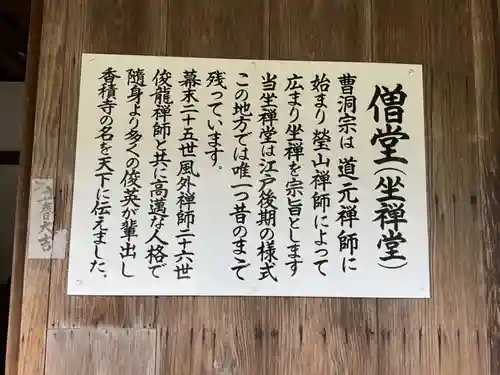 僧堂(坐禅堂)
曹洞宗は 道元禅師に
始まり 瑩山禅師によって
広まり坐禅を宗旨とします
当坐禅堂は江戸後期の様式
この地方では唯一つ昔のまで
残っています。
幕末二十五世風外禅師二十六世
俊龍禅師と共に高邁な人格で
随身より多くの俊英が輩出し
香積寺の名を天下に伝えました。
立春大吉